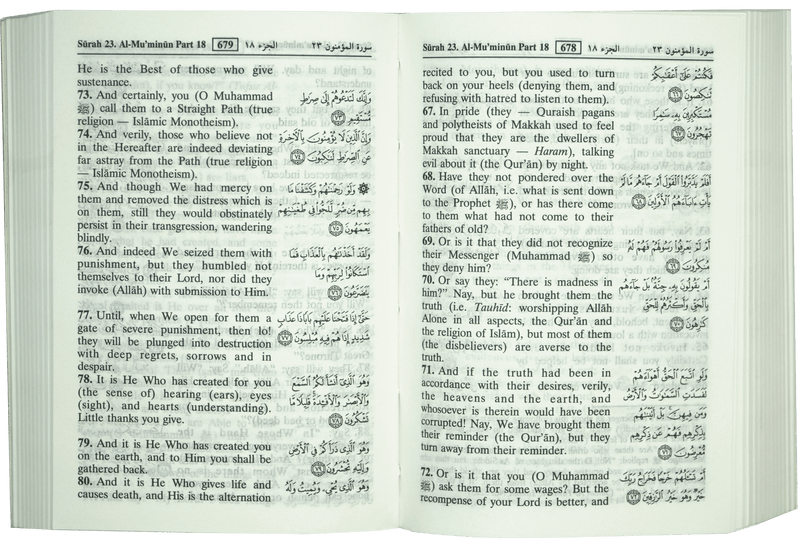 Sūrah 23. Al-Mu'minūn Part 18 678 الجزء ١٨ سورة المؤمنون ٢٣
recited to you, but you used to turn
back on your heels (denying them, and
refusing with hatred to listen to them).
67. In pride (they — Quraish pagans
and polytheists of Makkah used to feel
proud that they are the dwellers of
Makkah sanctuary — Haram), talking
evil about it (the Qur'ān) by night.
68. Have they not pondered over the
Word (of Allāh, i.e. what is sent down
to the Prophet ﷺ), or has there come
to them what had not come to their
fathers of old?
69. Or is it that they did not recognize
their Messenger (Muhammad ﷺ) so
they deny him?
70. Or say they: “There is madness in
him?” Nay, but he brought them the
truth (i.e. Tauhīd: worshipping Allāh
Alone in all aspects, the Qur'ān and
the religion of Islām), but most of them
(the disbelievers) are averse to the
truth.
71. And if the truth had been in
accordance with their desires, verily,
the heavens and the earth, and
whosoever is therein would have been
corrupted! Nay, We have brought them
their reminder (the Qur'ān), but they
turn away from their reminder.
72. Or is it that you (O Muhammad
ﷺ) ask them for some wages? But the
recompense of your Lord is better, and
فَكُنتُمْ عَلَىٰ أَعْقَابِكُمْ
تَنكِصُونَ ٦٦
مُسْتَكْبِرِينَ بِهِۦ سَٰمِرًا
تَهْجُرُونَ ٦٧
أَفَلَمْ يَدَّبَّرُوا۟ ٱلْقَوْلَ أَمْ جَآءَهُم مَّا لَمْ
يَأْتِ ءَابَآءَهُمُ ٱلْأَوَّلِينَ ٦٨
أَمْ لَمْ يَعْرِفُوا۟ رَسُولَهُمْ فَهُمْ لَهُۥ
مُنكِرُونَ ٦٩
أَمْ يَقُولُونَ بِهِۦ جِنَّةٌۢ بَلْ جَآءَهُم
بِٱلْحَقِّ وَأَكْثَرُهُمْ لِلْحَقِّ
كَٰرِهُونَ ٧٠
وَلَوِ ٱتَّبَعَ ٱلْحَقُّ أَهْوَآءَهُمْ
لَفَسَدَتِ ٱلسَّمَٰوَٰتُ وَٱلْأَرْضُ
وَمَن فِيهِنَّ ۚ بَلْ أَتَيْنَٰهُم
بِذِكْرِهِمْ فَهُمْ عَن ذِكْرِهِم
مُّعْرِضُونَ ٧١
أَمْ تَسْـَٔلُهُمْ خَرْجًا فَخَرَاجُ رَبِّكَ
خَيْرٌ ۖ وَهُوَ خَيْرُ ٱلرَّٰزِقِينَ ٧٢
Sūrah 23. Al-Mu'minūn Part 18 679 الجزء ١٨ سورة المؤمنون ٢٣
He is the Best of those who give
sustenance.
73. And certainly, you (O Muhammad
ﷺ) call them to a Straight Path (true
religion — Islāmic Monotheism).
74. And verily, those who believe not
in the Hereafter are indeed deviating
far astray from the Path (true religion
— Islāmic Monotheism).
75. And though We had mercy on
them and removed the distress which is
on them, still they would obstinately
persist in their transgression, wandering
blindly.
76. And indeed We seized them with
punishment, but they humbled not
themselves to their Lord, nor did they
invoke (Allāh) with submission to Him.
77. Until, when We open for them a
gate of severe punishment, then lo!
they will be plunged into destruction
with deep regrets, sorrows and in
despair.
78. It is He Who has created for you
(the sense of) hearing (ears), eyes
(sight), and hearts (understanding).
Little thanks you give.
79. And it is He Who has created you
on the earth, and to Him you shall be
gathered back.
80. And it is He Who gives life and
causes death, and His is the alternation
وَإِنَّكَ لَتَدْعُوهُمْ إِلَىٰ صِرَٰطٍ
مُّسْتَقِيمٍ ٧٣
وَإِنَّ ٱلَّذِينَ لَا يُؤْمِنُونَ بِٱلْـَٔاخِرَةِ
عَنِ ٱلصِّرَٰطِ لَنَٰكِبُونَ ٧٤
۞ وَلَوْ رَحِمْنَٰهُمْ وَكَشَفْنَا مَا
بِهِم مِّن ضُرٍّ لَّلَجُّوا۟ فِى طُغْيَٰنِهِمْ
يَعْمَهُونَ ٧٥
وَلَقَدْ أَخَذْنَٰهُم بِٱلْعَذَابِ فَمَا
ٱسْتَكَانُوا۟ لِرَبِّهِمْ وَمَا
يَتَضَرَّعُونَ ٧٦
حَتَّىٰٓ إِذَا فَتَحْنَا عَلَيْهِم بَابًا ذَا عَذَابٍ
شَدِيدٍ إِذَا هُمْ فِيهِ مُبْلِسُونَ ٧٧
وَهُوَ ٱلَّذِىٓ أَنشَأَ لَكُمُ ٱلسَّمْعَ
وَٱلْأَبْصَٰرَ وَٱلْأَفْـِٔدَةَ ۚ قَلِيلًا مَّا
تَشْكُرُونَ ٧٨
وَهُوَ ٱلَّذِى ذَرَأَكُمْ فِى ٱلْأَرْضِ
وَإِلَيْهِ تُحْشَرُونَ ٧٩
وَهُوَ ٱلَّذِى يُحْىِۦ وَيُمِيتُ وَلَهُ